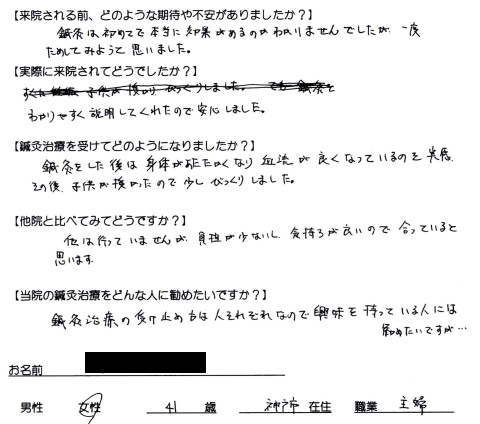 【来院される前、どのような期待や不安がありましたか?】
鍼灸は初めてで本当に効果があるのかわかりませんでしたが、一度
ためしてみようと思いました。
【実際に来院されてどうでしたか?】
子供が授かり びっくりしました。 でも 鍼灸を
わかりやすく説明してくれたので安心しました。
【鍼灸治療を受けてどのようになりましたか?】
鍼灸をした後は身体があたたかくなり血流が良くなっているのを実感。
その後、子供が授かったので少しびっくりしました。
【他院と比べてみてどうですか?】
他は行っていませんが、負担が少ないし、気持ちが良いので合っていると
思います
【当院の鍼灸治療をどんな人に勧めたいですか?】
鍼灸治療の受け止め方は人それぞれなので興味を持っている人には
勧めたいですが…
お名前
男性 女性 41 歳 神戸市 在住 職業 主婦